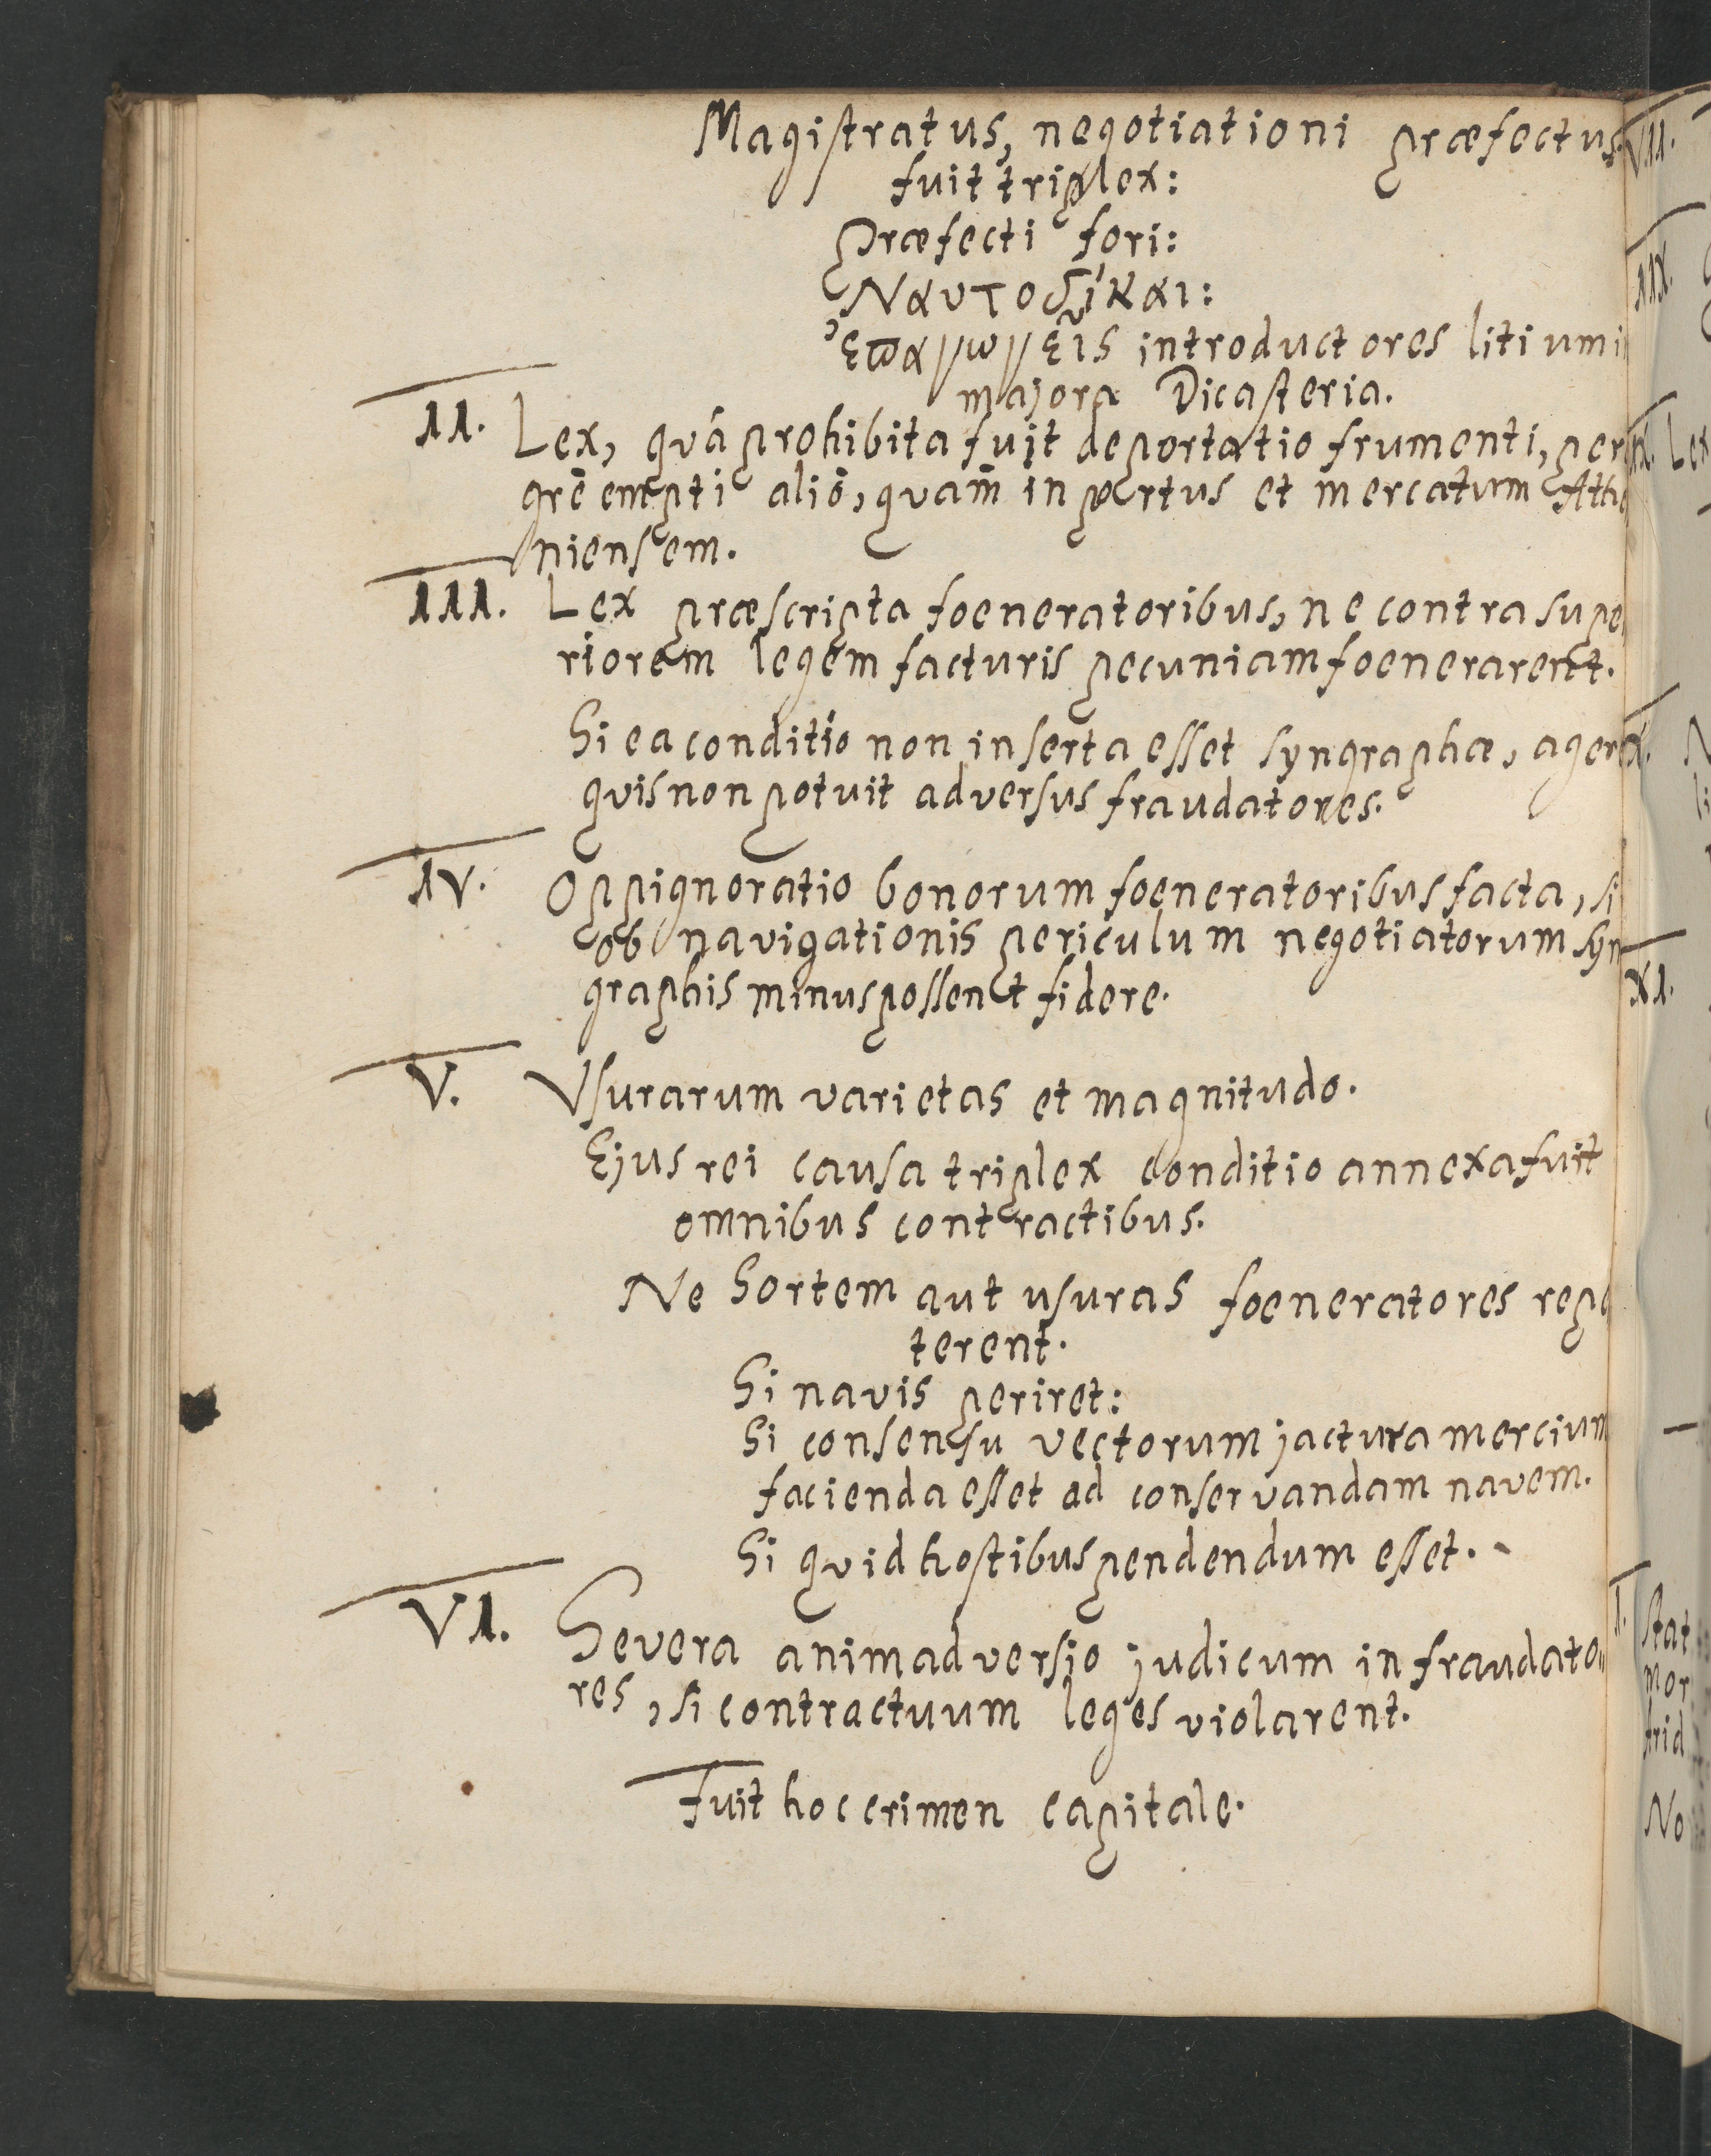 Magistratus, negotiationi præfectus
fuit triplex:
Præfecti fori:
Ναυτοδίκαι:
Ἐπαγωγεῖς introductores litium i
majora Dicasteria.
II. Lex, quâ prohibita fuit deportatio frumenti, per
grē empti aliō, quam̄ in portus et mercatum Athe
niensem.
III. Lex præscripta foeneratoribus, ne contra supe
riorem legem facturis pecuniam foenerarent.
Si ea conditio non inserta esset syngraphæ, agere
quis non potuit adversus fraudatores.
IV. Oppignoratio bonorum foeneratoribus facta, si
ob navigationis periculum negotiatorum syn
graphis minus possent fidere.
V. Usurarum varietas et magnitudo.
Ejus rei causa triplex conditio annexa fuit
omnibus contractibus.
Ne Sortem aut usuras foeneratores repe
terent.
Si navis periret:
Si consensu vectorum jactura mercium
facienda esset ad conservandam navem.
Si quid hostibus pendendum esset.
VI. Severa animadversio judicum in fraudato„
res, si contractuum leges violarent.
Fuit hoc crimen capitale.
VII.
IIX.
IX. Lex
X.
XI.
I. Stat
mor
frid
No